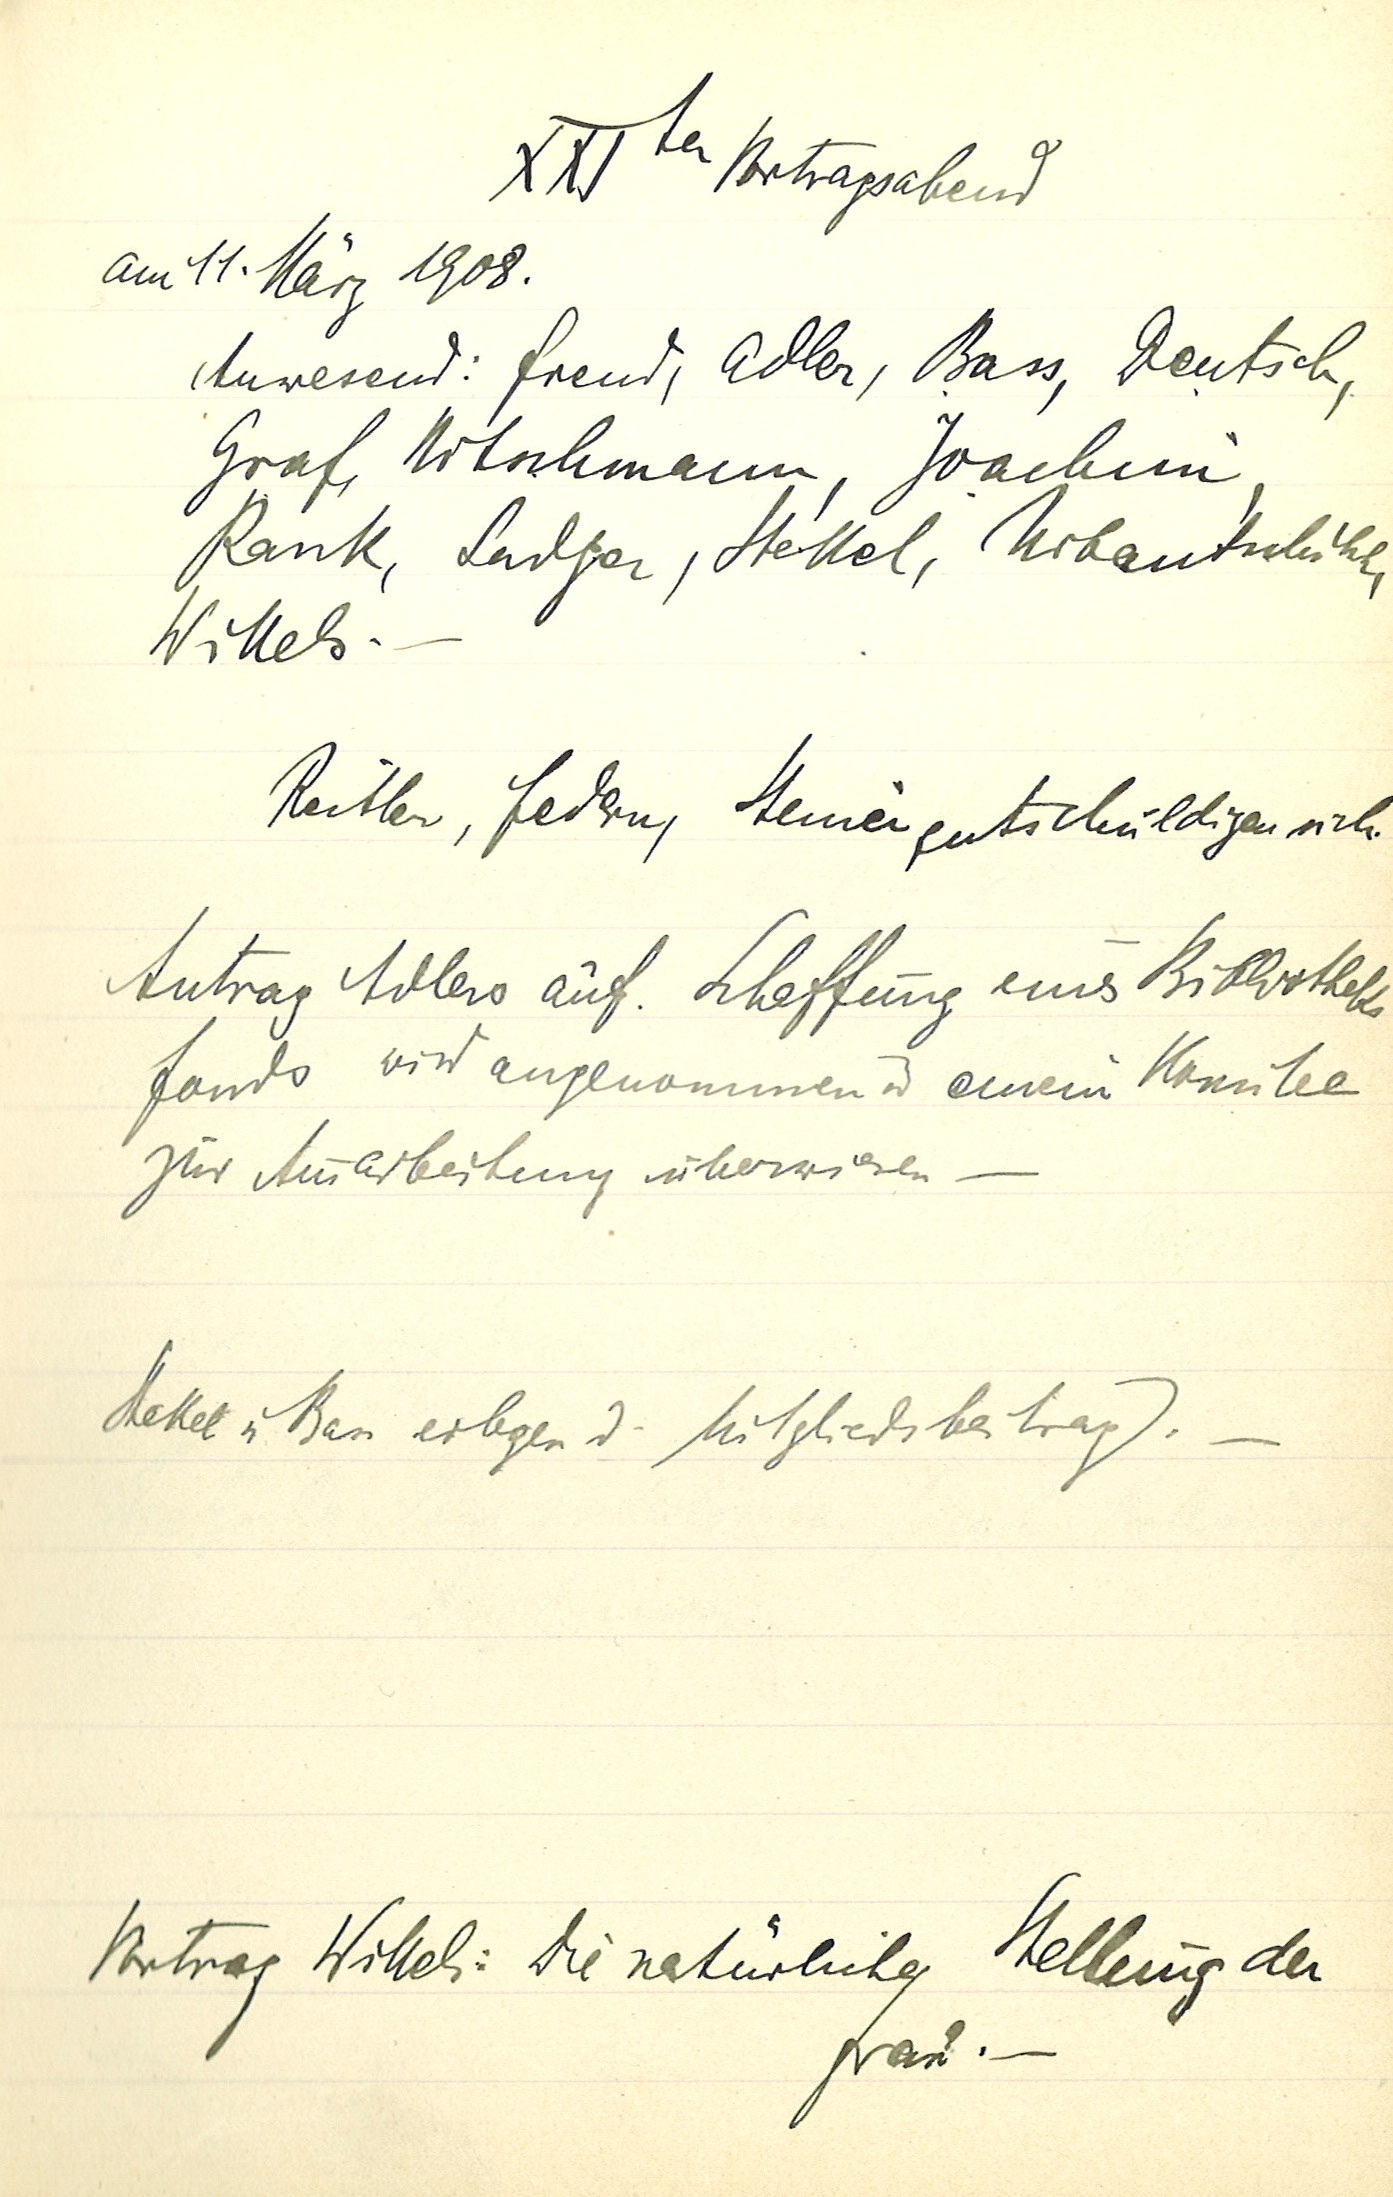 XXIter Vortragsabend
am 11. März 1908.
Anwesend: Freud, Adler, Bass, Deutsch,
Graf, Hitschmann, Joachim,
Rank, Sadger, Stekel, Urbantschitsch,
Wittels. —
Reitler, Federn, Steiner entschuldigen sich.
Antrag Adlers auf. Schaffung eines Bibliotheks
fonds wird angenommen u einem Komitee
zur Ausarbeitung überwiesen —
Stekel u Bass erlegen d. Mitgliedsbeitrag). —
Vortrag Wittels: Die natürliche Stellung der
Frau. —